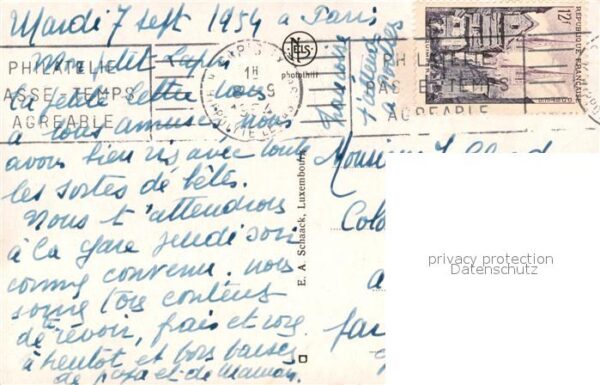 Mardi 7 sept 1954 a Paris
Mon petit Lapin
ta petite lettre nous
a tous amusé, nous
avons bien ris avec toute
les sortes de bêtes.
Nous t'attendrons
à la gare jeudi soir
comme convenu. nous
some tous contents
de revoir, frais et rose
à bientot et bons baisers
de papa et de maman.
PHILATELIE
PASSE-TEMPS
AGREABLE
PARIS
1H
8-9
1954
HIPPOLYTE LEBAS
NELS
photothill
E. A. Schaack, Luxembourg
t'attends
PHILATELIE
PASSE-TEMPS
AGREABLE
12F
REPUBLIQUE FRANÇAISE
Monsieur
Colo
a
privacy protection
Datenschutz